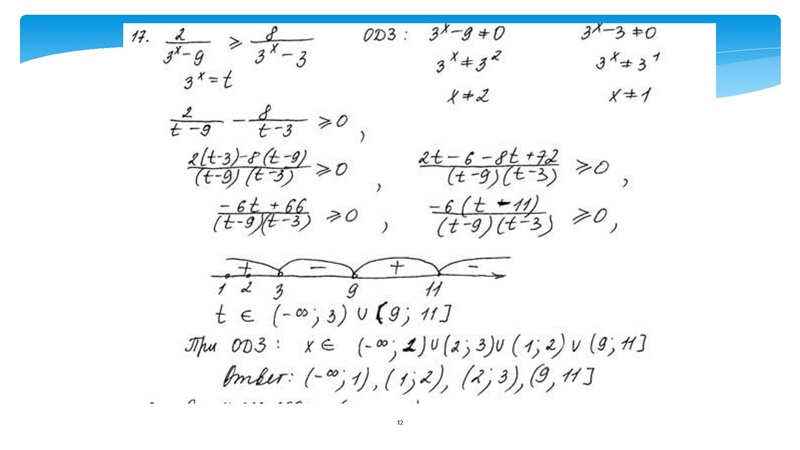 17. 2/(3^x-9) ≥ 8/(3^x-3) ОДЗ: 3^x-9≠0 3^x-3≠0
3^x=t 3^x≠3^2 3^x≠3^1
x≠2 x≠1
2/(t-9) - 8/(t-3) ≥0,
(2(t-3)-8(t-9))/((t-9)(t-3)) ≥0, (2t-6-8t+72)/((t-9)(t-3)) ≥0,
(-6t+66)/((t-9)(t-3)) ≥0, (-6(t-11))/((t-9)(t-3)) ≥0,
+ - + -
1 2 3 9 11
t ∈ (-∞; 3) ∪ (9; 11]
При ОДЗ: x ∈ (-∞; 1)∪(2; 3)∪(1; 2)∪(9; 11]
Ответ: (-∞; 1), (1; 2), (2; 3), (9, 11]
12